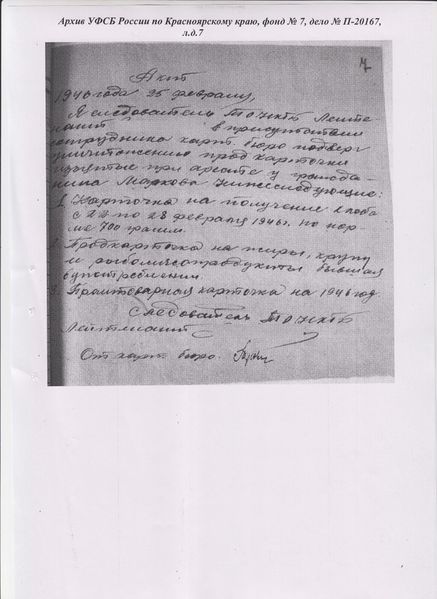 Архив УФСБ России по Красноярскому краю, фонд № 7, дело № П-20167,
л.д.7
Акт
1946 года 25 февраля,
Я следователь ТО НКГБ Лейте
нант в присутствии
сотрудника карт. бюро подверг
уничтожению прод карточки
изъятые при аресте у гражда-
нина Маркова нижеследующие:
1. Карточка на получение хлеба
с 22 по 28 февраля 1946 г. по нор-
ме 700 грамм.
2. Продкарточка на жиры, крупу
и рыбомясопродукты бывшая
в употреблении.
3. Промтоварная карточка на 1946 год.
Следователь ТО НКГБ
Лейтенант
От карт. бюро.